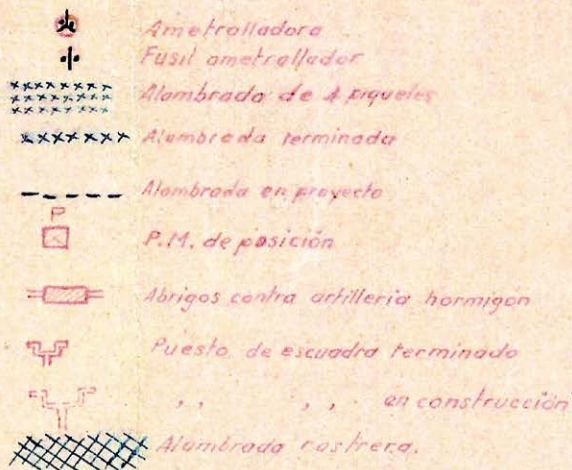 Ametralladora
Fusil ametrallador
Alambrada de 4 piquetes
Alambrada terminada
Alambrada en proyecto
P
P.M. de posición
Abrigos contra artilleria hormigon
Puesto de escuadra terminado
,, ,, en construcción
Alambrada rastrera.